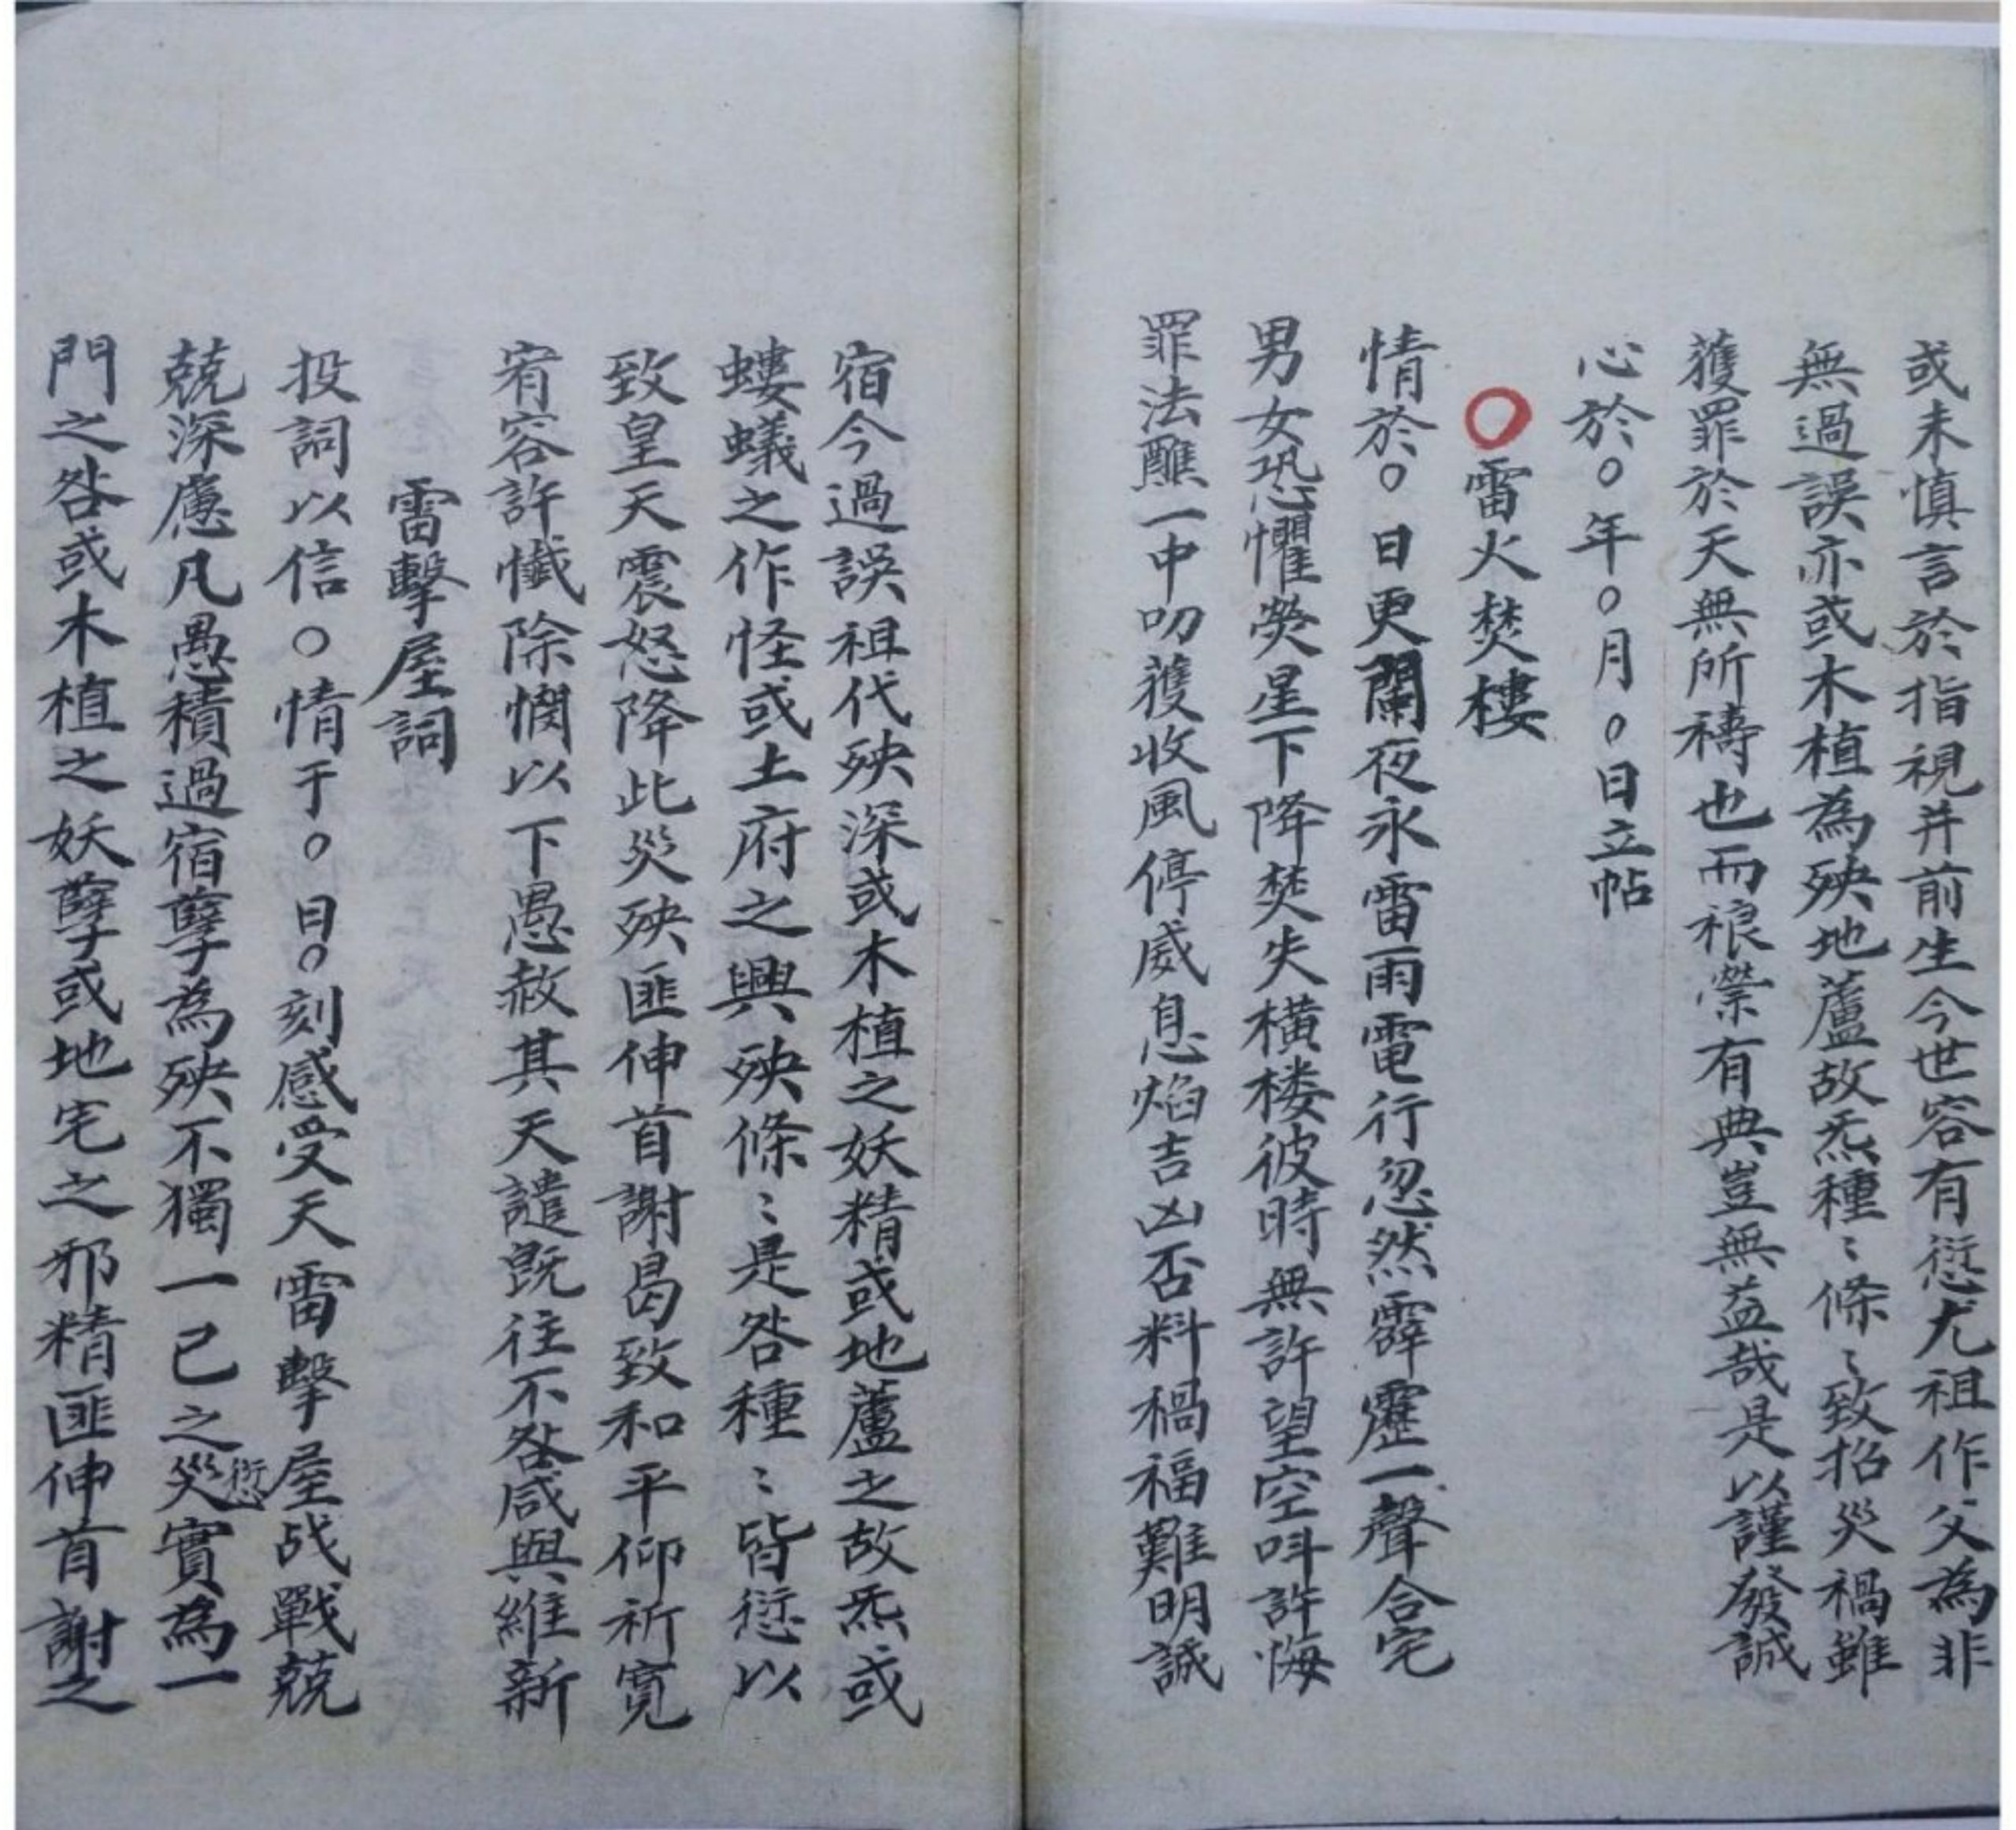 或未慎言於指視并前生今世容有愆尤祖作父為非
無過誤亦或木植為殃地蘆故炁種〻條〻致招災禍雖
獲罪於天無所禱也而禳禜有典豈無益哉是以謹發誠
心於〇年〇月〇日立帖
〇雷火焚樓
情於〇日更闌夜永雷雨電行忽然霹靂一聲合宅
男女恐懼熒星下降焚失橫楼彼時無許望空呌許悔
罪法醮一中叨獲收風停威息焰吉凶否料禍福難明誠
宿今過誤祖代殃深或木植之妖精或地蘆之故炁或
螻蟻之作怪或土府之興殃條〻是咎種〻皆愆以
致皇天震怒降此災殃匪伸首謝曷致和平仰祈寬
宥容許懺除憫以下愚赦其天譴既往不咎咸與維新
雷擊屋詞
投詞以信〇情于〇日〇刻感受天雷擊屋战戰兢
兢深慮凡愚積過宿孽為殃不獨一己之災愆實為一
門之咎或木植之妖孽或地宅之邪精匪伸首謝之